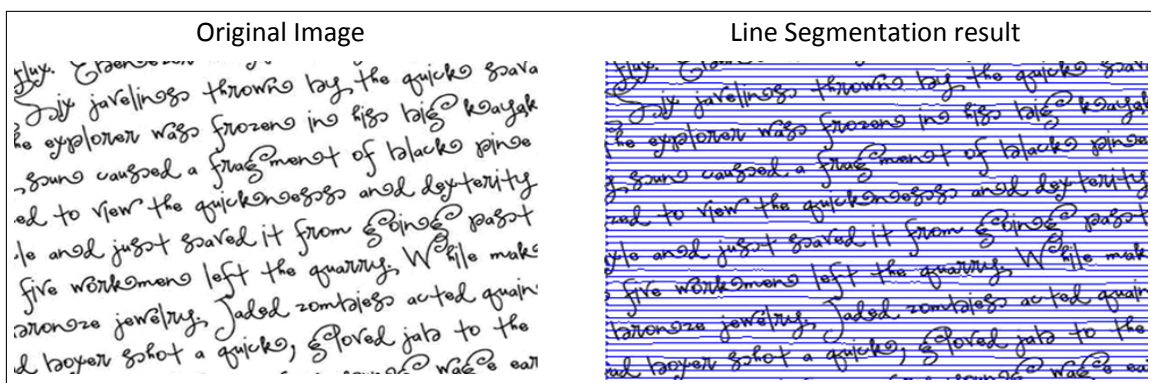 Original Image
flux.
Six javelins thrown by the quick sava
he explorer was frozen in his big kayak
caused a fragment of black pine
ed to view the quickness and dexterity
le and just saved it from going past
five workmen left the quarry. While mak
bronze jewelry. Jaded zombies acted quain
d boxer shot a quick, gloved jab to the
Line Segmentation result
flux.
Six javelins thrown by the quick sav
he explorer was frozen in his big kayak
caused a fragment of black pine
ed to view the quickness and dexterity
le and just saved it from going past
five workmen left the quarry. While mak
bronze jewelry. Jaded zombies acted quain
d boxer shot a quick, gloved jab to the